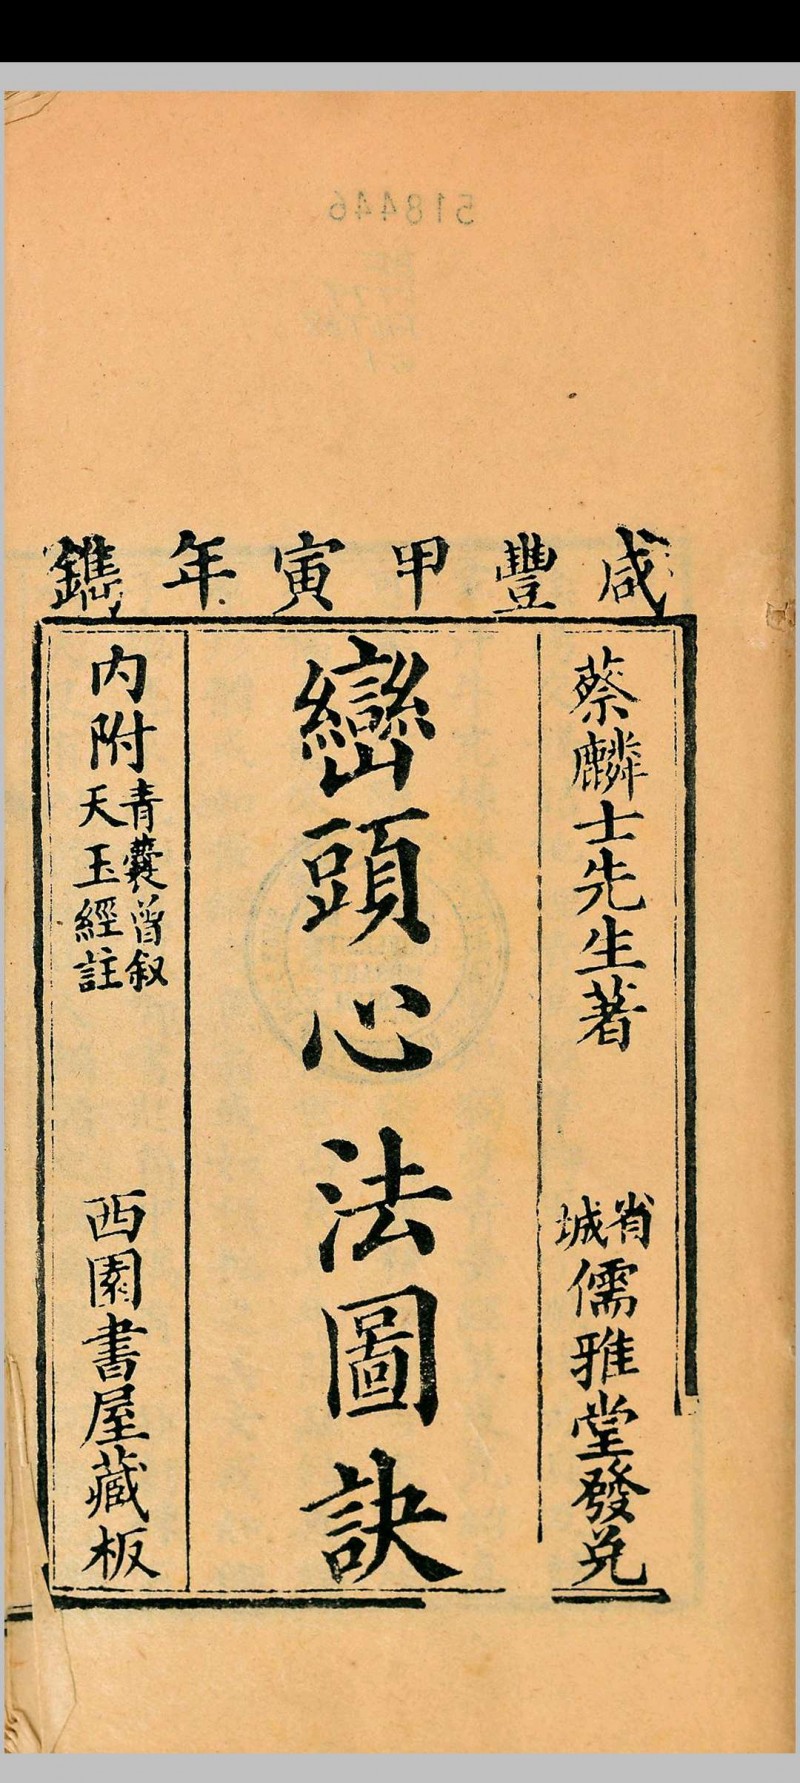 咸豐甲寅年鐫
蔡麟士先生著
省城儒雅堂發兌
巒頭心法圖訣
内附
青囊曾叙
天玉經註
西園書屋藏板
518446